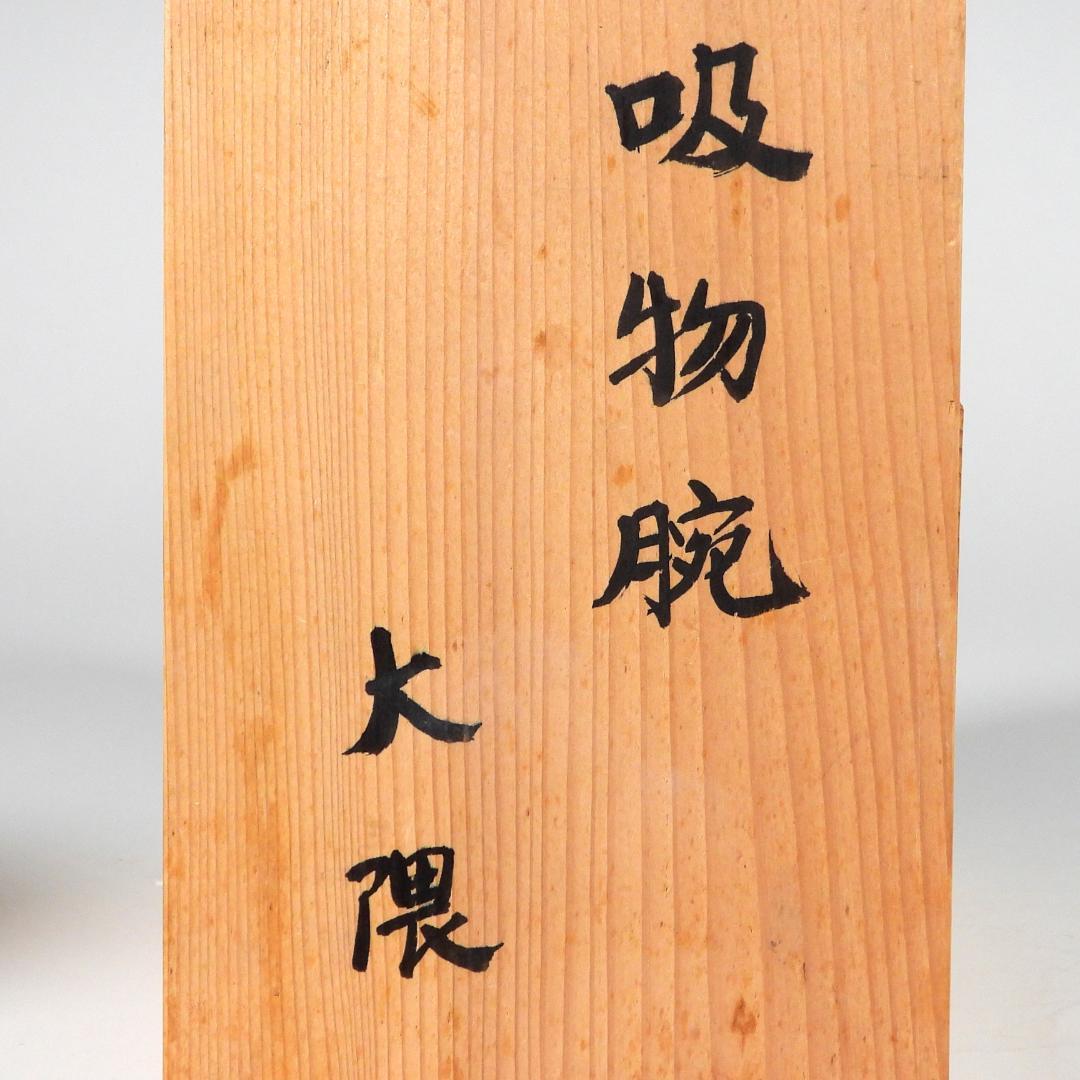 吸物腕
大隈